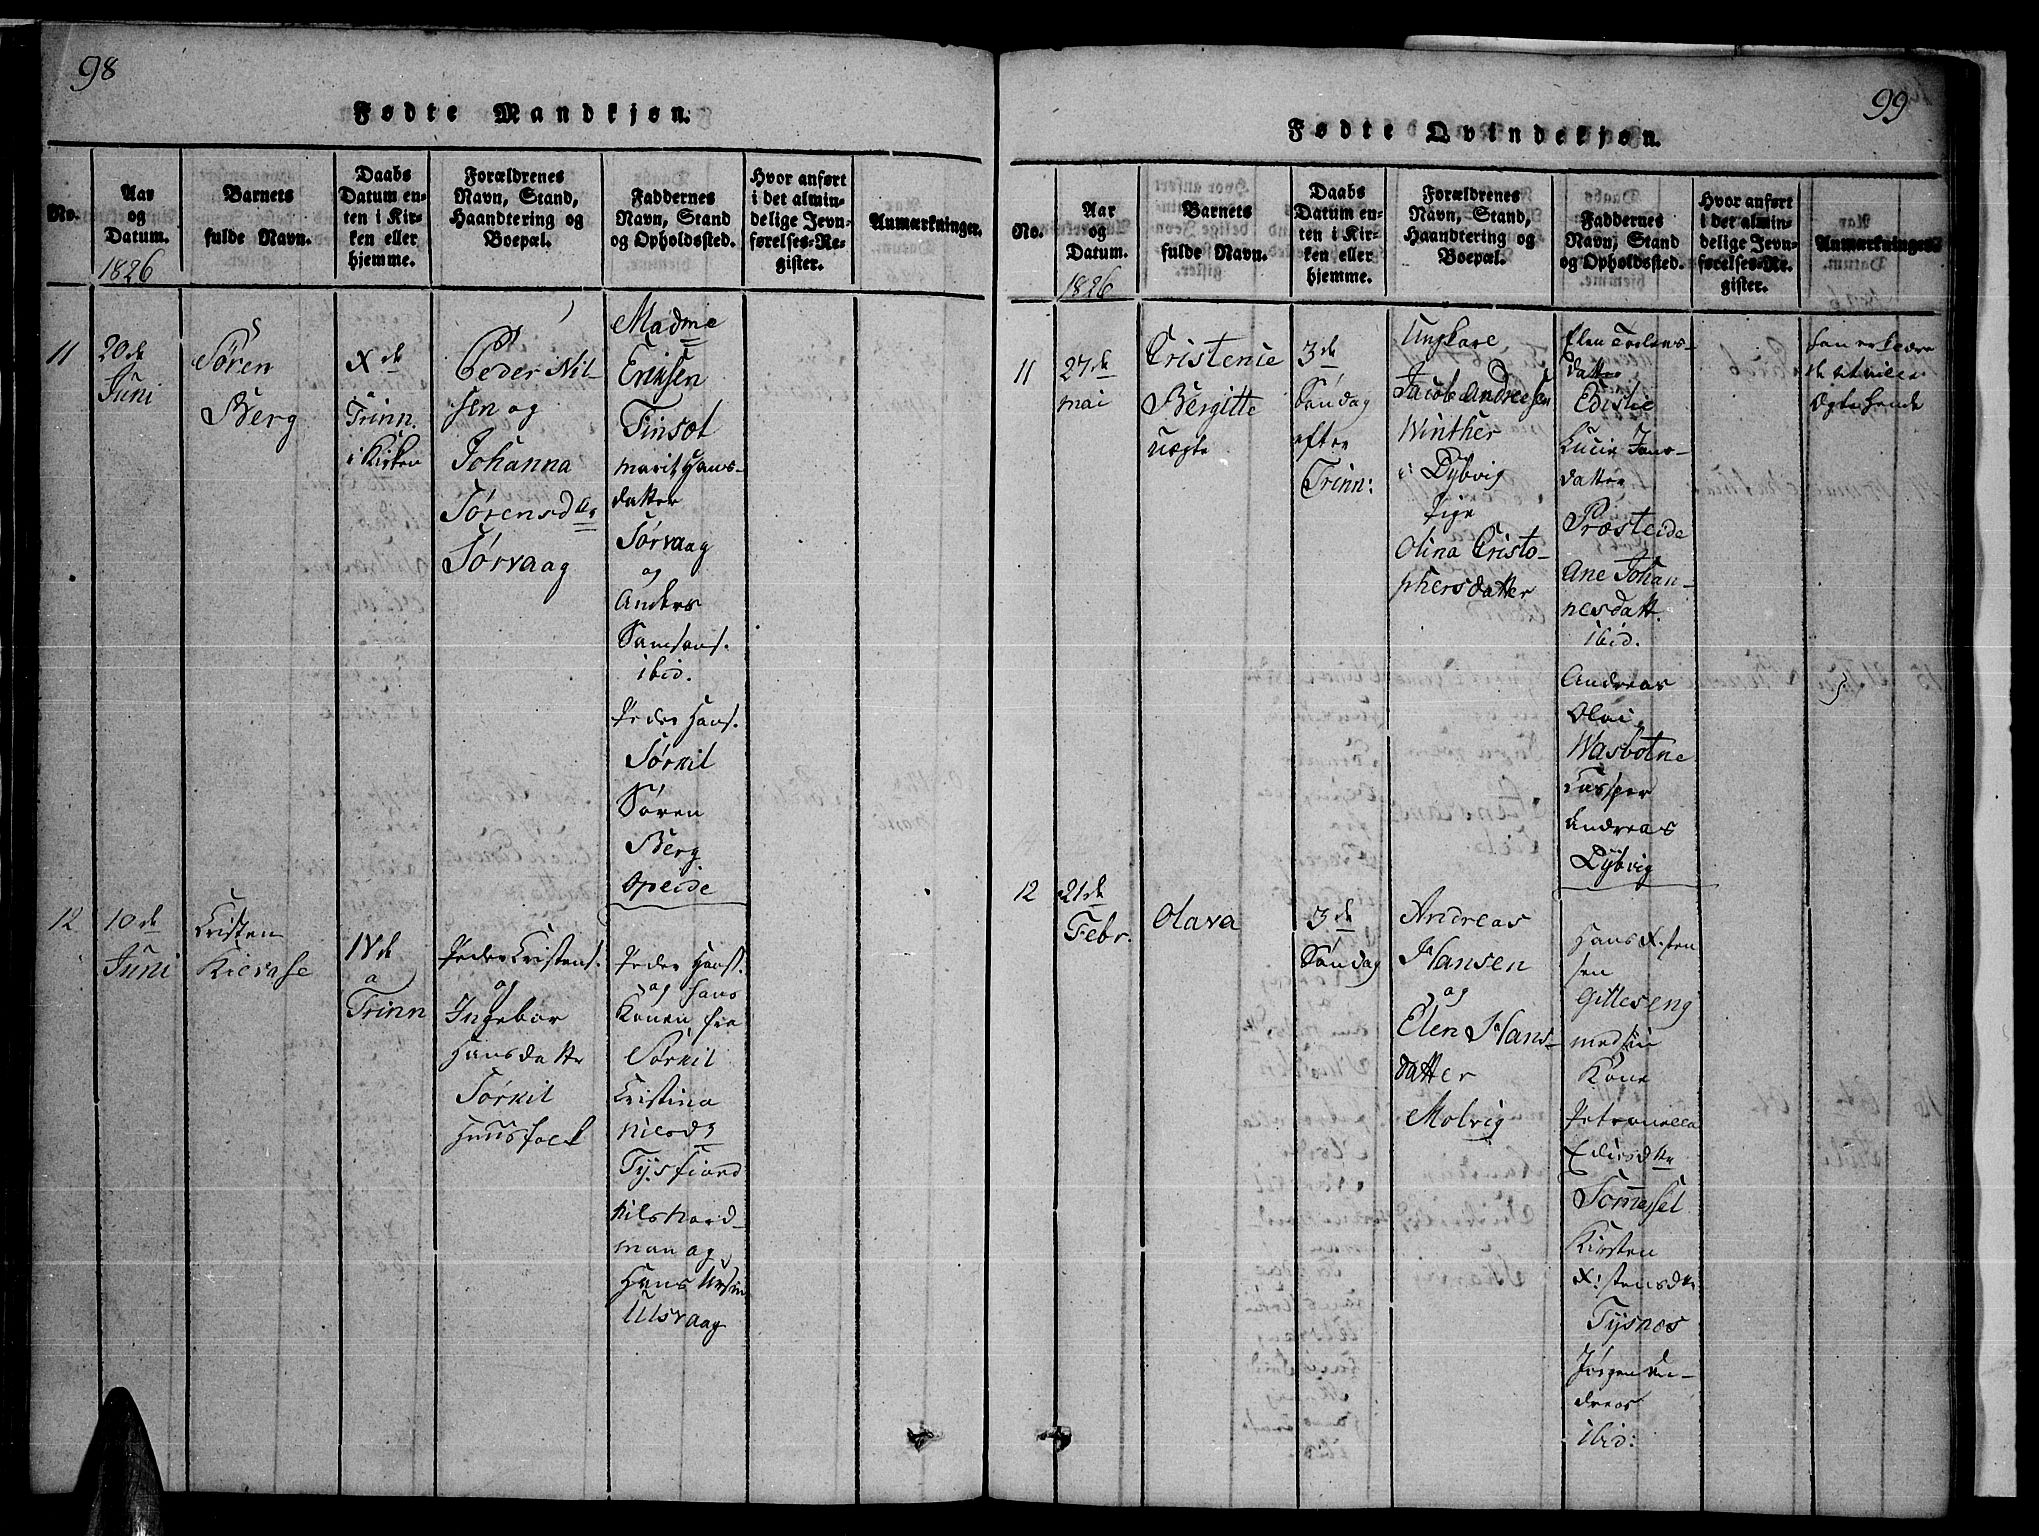 98
Fødte Mandkjøn.
No.
Aar
og
Datum.
1826
Barnets
fulde Navn.
Daabs
Datum en-
ten i Kir-
ken eller
hjemme.
Forældrenes
Navn, Stand,
Haandtering og
Boepæl.
Faddernes
Navn, Stand
og Opholdssted.
Hvor anført
i det almin-
delige Jevn-
førelses-Re-
gister.
Anmærkninger.
11
20de
Juni
Sören
Berg
Xde
Trinn.
i Kirken
Peder Nil-
sen og
Johanna
Sørensdtr
Sørvaag
Madme
Eriksen
Finsæt
Marit Hans-
datter
Sørvaag
og
Anders
Samsons.
ibid.
Peder Hans.
Sørkil
Søren
Berg
Opeide
12
10de
Juni
Cristen
a
Trinn
Peder Cristens.
og
Ingebor
Hansdattr
Sørkil
Huusfolk
Peder Hans.
og hans
Konen fra
Sørkil
Cristina
Nilsd
Tysfiord
Nils Nord-
man og
Hans
Ulsvaag
99
Fødte Qvindekjøn.
No.
Aar
og
Datum.
1826
Barnets
fulde Navn.
Daabs
Datum en-
ten i Kir-
ken eller
hjemme.
Forældrenes
Navn, Stand,
Haandtering og
Boepæl.
Faddernes
Navn, Stand
og Opholdssted.
Hvor anført
i det almin-
delige Jevn-
førelses-Re-
gister.
Anmærkninger.
11
27de
mai
Cristenie
Bergitte
uægte
3de
Søndag
efter
Trinn:
Ungkare
Jacob Andreesen
Winther
i Dybvig
Pige
Olina Cristo-
phersdatter
Elen
datter
Lucie Jens-
datter
Præsteide
Ane Johan-
nesdatt.
ibid.
Andreas
Olai
Wasbotne
Casper
Andreas
Dybvig
12
21de
Febr.
Olava
3de
Søndag
Andreas
Hansen
og
Elen Hans-
datter
Molvig
Hans X:sten
sen
Gilleseng
med sin
Kone
Petronella
Tømesset
Kirsten
X:stensdtr
Tysnes
Jørgen An-
dreas
ibid: